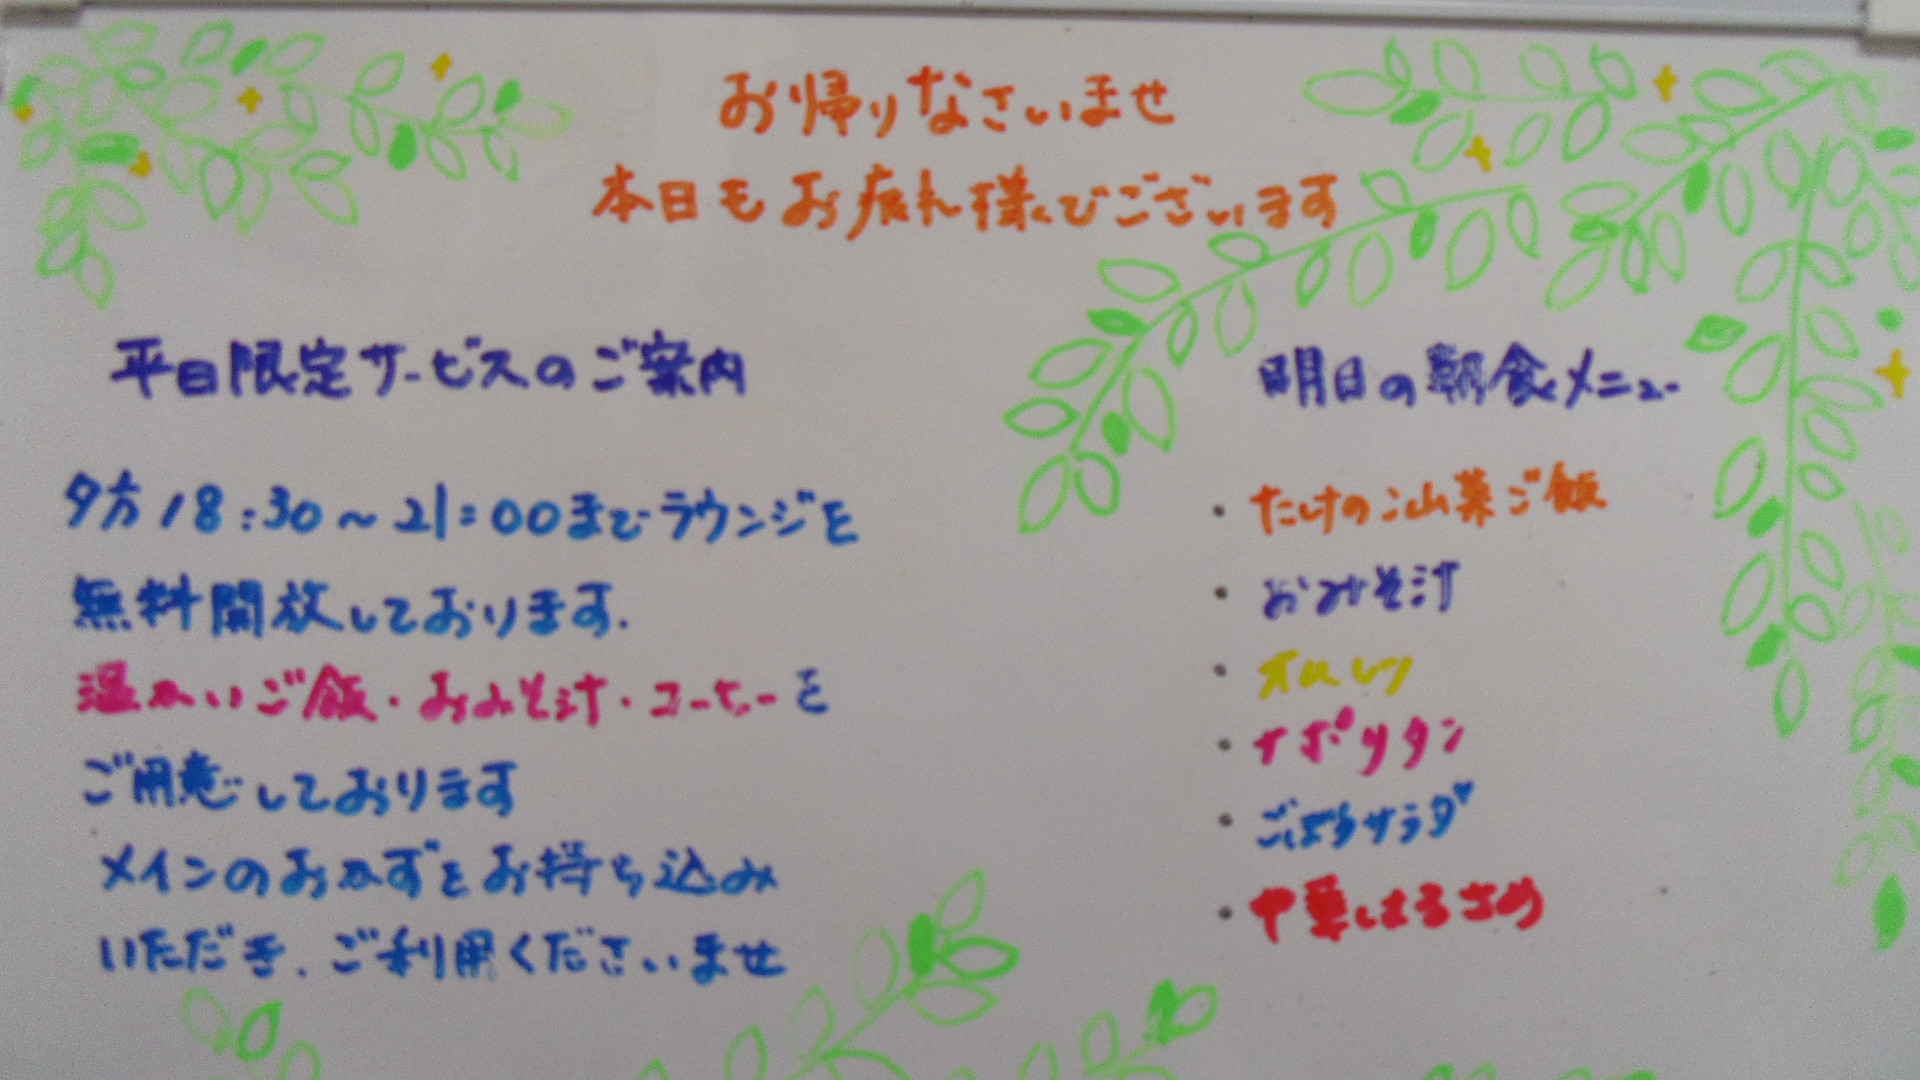 お帰りなさいませ
本日もお疲れ様でございます
平日限定サービスのご案内
夕方18:30～21:00までラウンジを
無料開放しております.
温かいご飯・おみそ汁・コーヒーを
ご用意しております
メインのおかずをお持ち込み
いただき、ご利用くださいませ
明日の朝食メニュー
・たけのこ山菜ご飯
・おみそ汁
・オムレツ
・ナポリタン
・ごぼうサラダ♥
・中華はるさめ